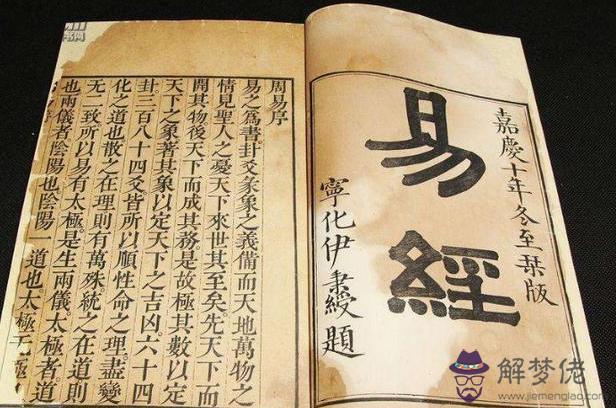 嘉慶十年冬至琹版
易經
寧化伊秉綬題
周易序
易之爲書卦爻彖象之義備而天地萬物之
情見聖人之憂天下來世其至矣先天下而
開其物後天下而成其務是故極其數以定
天下之象著其象以定天下之吉凶六十四
卦三百八十四爻皆所以順性命之理盡變
化之道也散之在理則有萬殊統之在道則
无一致所以易有太極是生兩儀太極者道
也兩儀者陰陽也陰陽一道也太極无極
解梦佬
www.jiemenglao.com